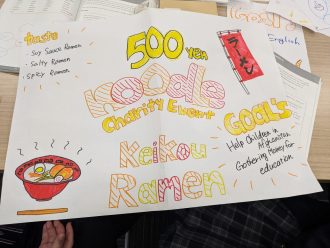 taste
・Soy Sauce Ramen
・Salty Ramen
・Spicy Ramen
500 YEN
Noodle
Charity Event
Keikou
Ramen
ラーメン
GOALS
Help Children in
Afghanistan
Gathering Money for
education
English